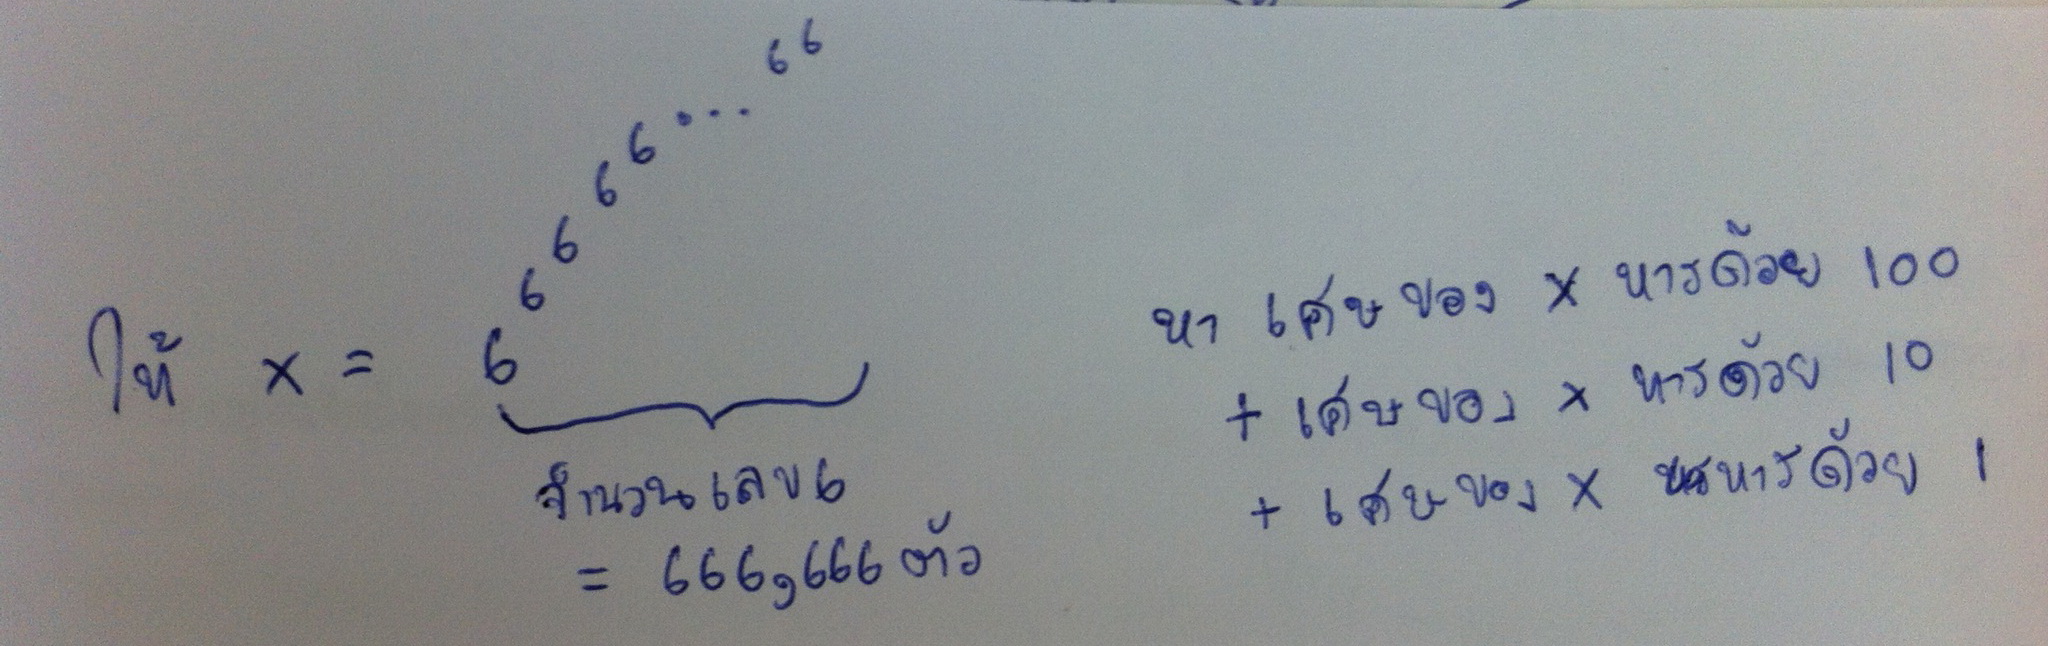 ให้ x = 6^6^6^6^6^6^...^6^6
จำนวนเลข 6
= 666,666 ตัว
หา เศษของ x หารด้วย 100
+ เศษของ x หารด้วย 10
+ เศษของ x หารด้วย 1